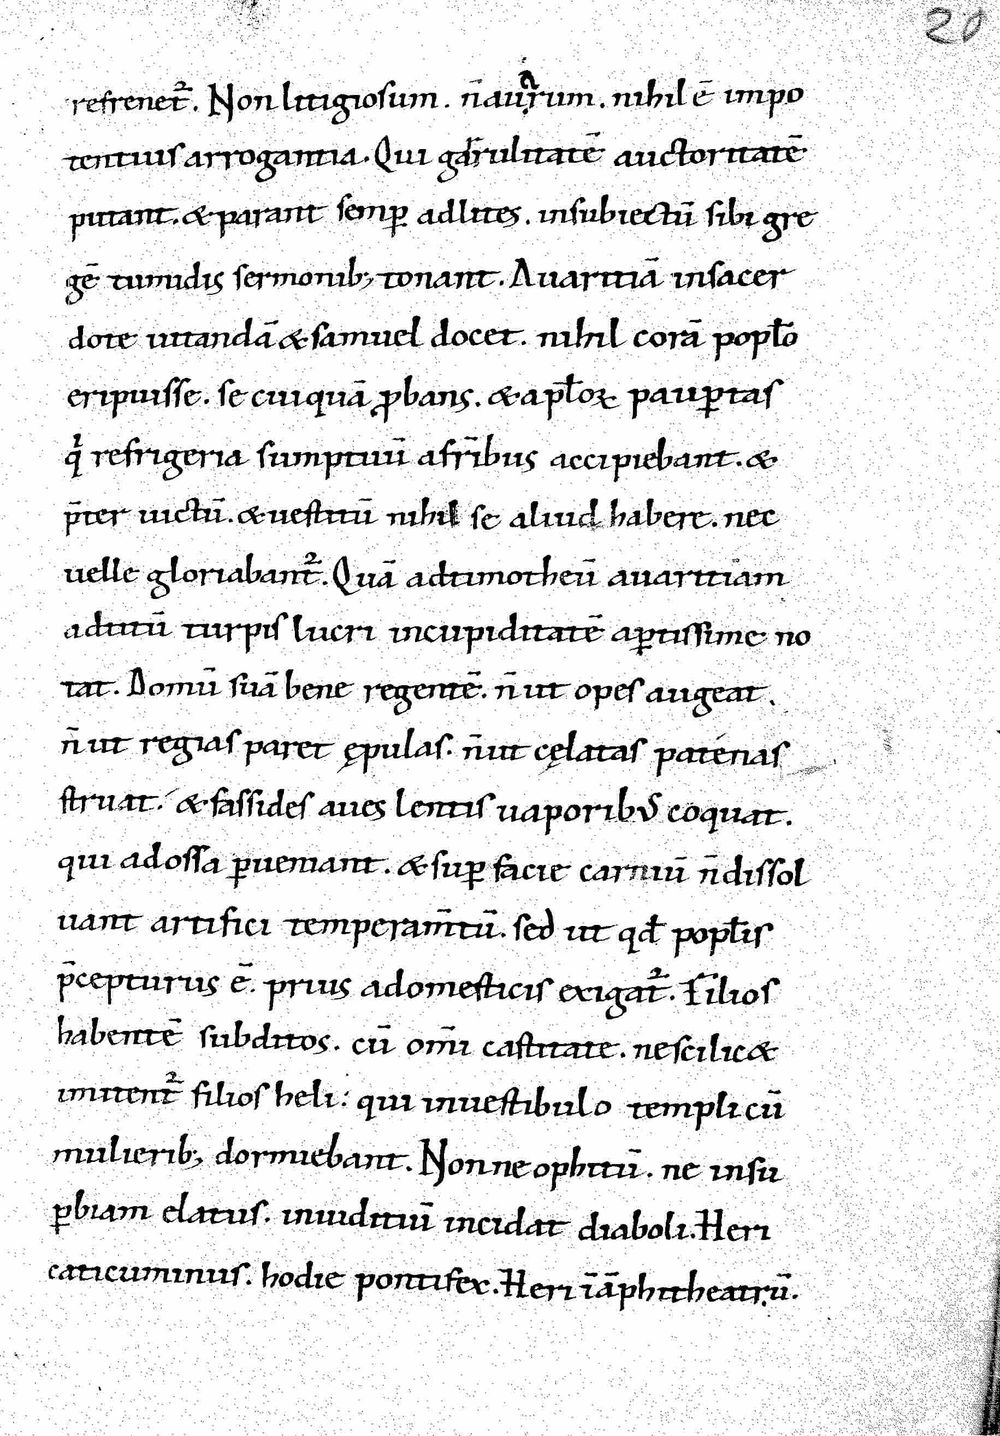 20
refrenet᷑. Non litigiosum. n̄ auaꝝum. nihil ē impo
tentius arrogantia. Qui garrulitatē auctoritatē
putant. & parant semꝑ adlites. insubiectū sibi gre
gē tumidis sermonib; tonant. Auaritiā insacer
dote uitandā & samuel docet. nihil corā popl̄o
eripuisse. se cuiquā ꝓbans. & apl̄oꝝ pauꝑtas
qͥ refrigeria sumptuū afr̄ibus accipiebant. &
p̄ter uictū. & uestitū nihil se aliud habere. nec
uelle gloriabant᷑. Quā adtimotheū auaritiam
adtitū turpis lucri incupiditatē aꝑtissime no
tat. Domū suā bene regentē. n̄ ut opes augeat.
n̄ ut regias paret ępulas. n̄ ut cęlatas patenas
struat. & fassides aues lentis uaporibus coquat.
qui adossa ꝑueniant. & suꝑ facie carniū n̄ dissol
uant artifici temperam̄tū. sed ut qđ popl̄is
p̄cepturus ē. prius adomesticis exigat᷑. Filios
habentē subditos. cū om̄i castitate. nescilic&
imitent᷑ filios heli: qui inuestibulo templi cū
mulierib; dormiebant. Non neophitū. ne insu
ꝑbiam elatus. iniuditiū incidat diaboli. Heri
caticuminus. hodie pontifex. Heri īāphitheatrū.